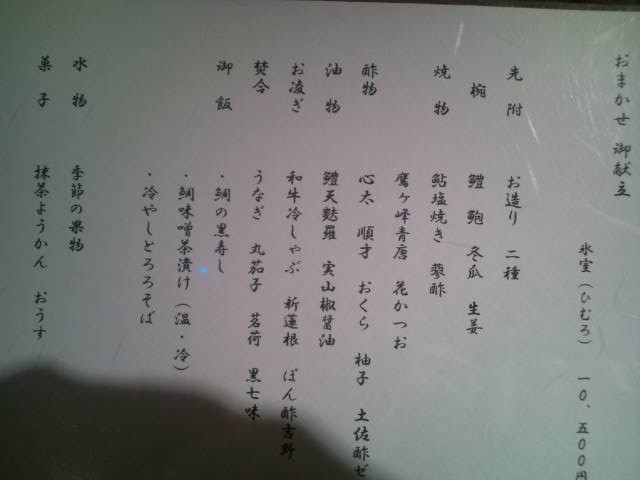 おまかせ 御献立
氷室(ひむろ) 一〇、五〇〇円
先附 お造り 二種
椀 鱧 鮑 冬瓜 生姜
焼物 鮎塩焼き 蓼酢
鷹ヶ峰青唐 花かつお
酢物 心太 順才 おくら 柚子 土佐酢ゼ
油物 鱧天麩羅 実山椒醤油
お凌ぎ 和牛冷しゃぶ 新蓮根 ぽん酢吉野
焚合 うなぎ 丸茄子 茗荷 黒七味
御飯 ・鯛の黒寿し
・鯛味噌茶漬け(温・冷)
・冷やしとろろそば
水物 季節の果物
菓子 抹茶ようかん おうす